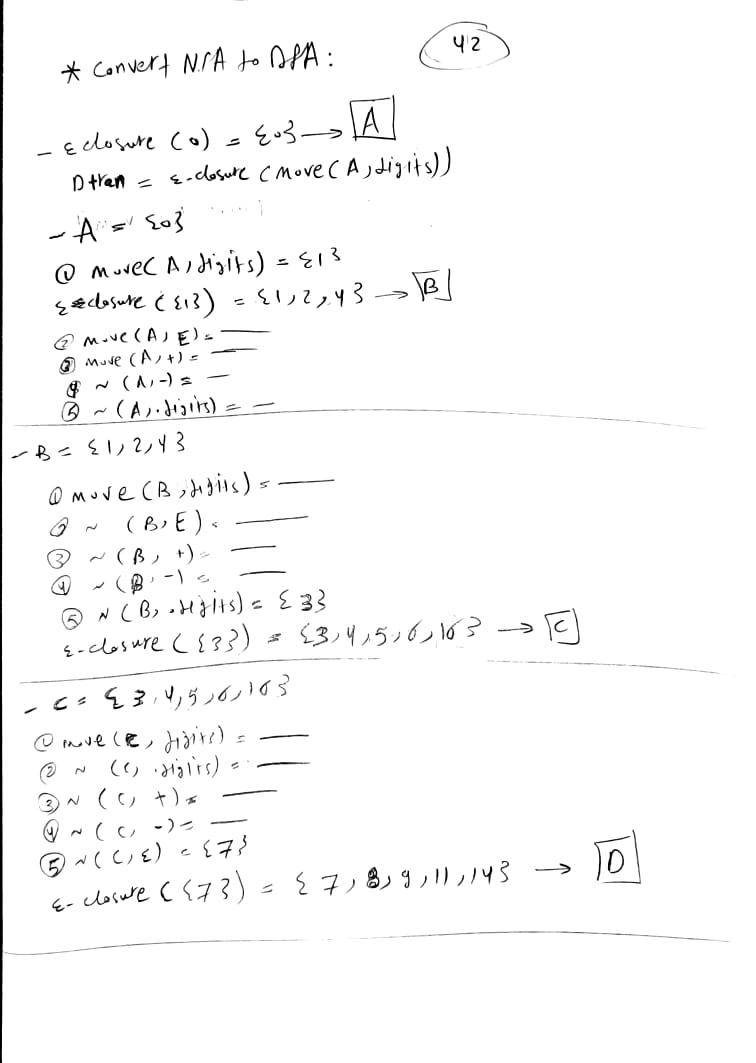 42
* Convert NFA to DFA :
- ε closure (0) = {0} → A
Dtran = ε-closure (move(A, digits))
- A = {0}
① move(A, digits) = {1}
ε-closure ({1}) = {1, 2, 4} → B
② move (A, E) = —
③ move (A, +) = —
④ ~ (A, -) = —
⑤ ~ (A, .digits) = —
- B = {1, 2, 4}
① move (B, digits) = —
② ~ (B, E) = —
③ ~ (B, +) = —
④ ~ (B, -) = —
⑤ ~ (B, .digits) = {3}
ε-closure ({3}) = {3, 4, 5, 6, 16} → C
- C = {3, 4, 5, 6, 16}
① move (C, digits) = —
② ~ (C, .digits) = —
③ ~ (C, +) = —
④ ~ (C, -) = —
⑤ ~ (C, E) = {7}
ε-closure ({7}) = {7, 8, 9, 11, 14} → D